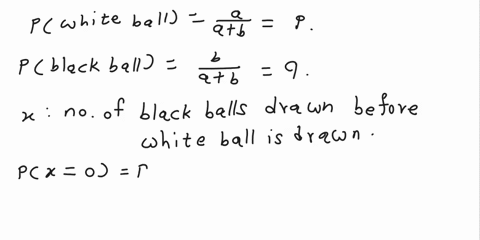 P(white ball) = a/(a+b) = p.
P(black ball) = b/(a+b) = q.
x : no. of black balls drawn before
white ball is drawn.
P(x = 0) =